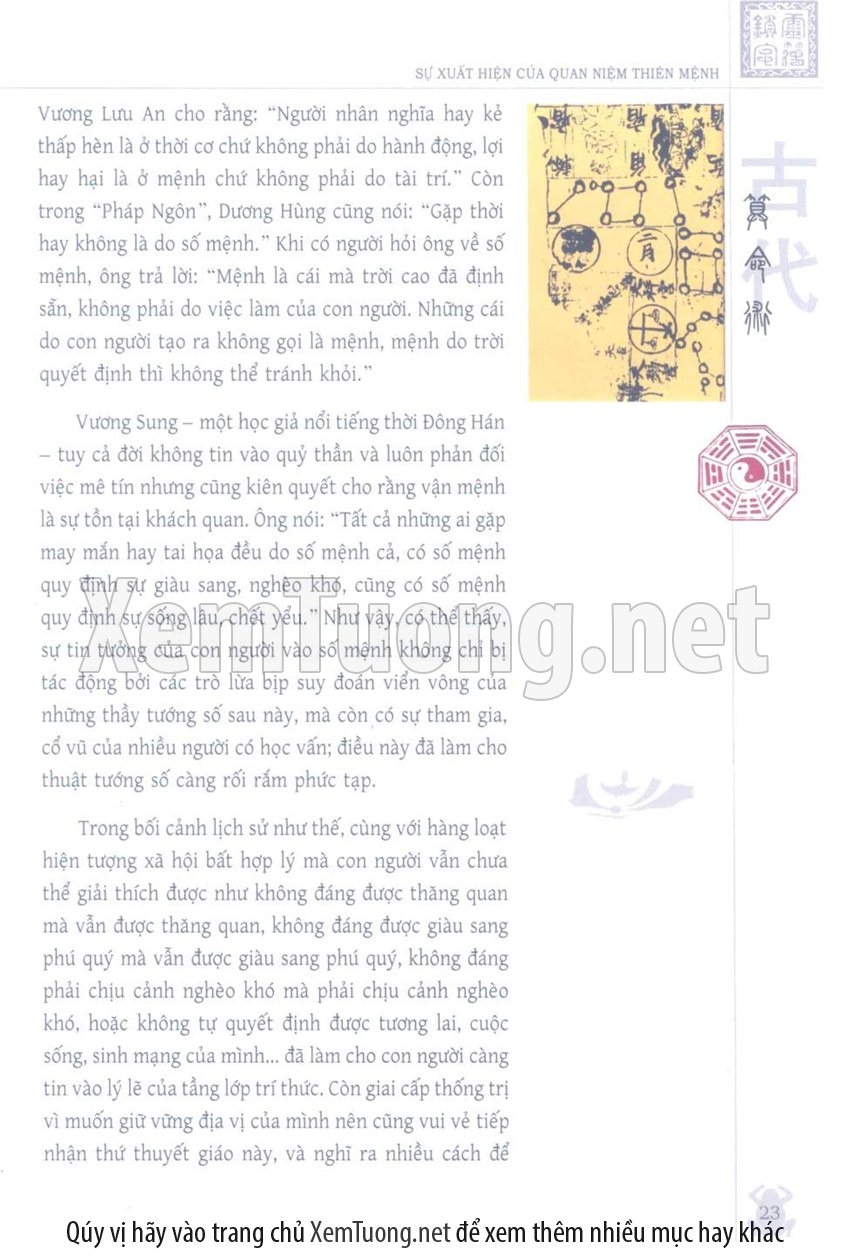 SỰ XUẤT HIỆN CỦA QUAN NIỆM THIÊN MỆNH
Vương Lưu An cho rằng: “Người nhân nghĩa hay kẻ
thấp hèn là ở thời cơ chứ không phải do hành động, lợi
hay hại là ở mệnh chứ không phải do tài trí.” Còn
trong “Pháp Ngôn”, Dương Hùng cũng nói: “Gặp thời
hay không là do số mệnh.” Khi có người hỏi ông về số
mệnh, ông trả lời: “Mệnh là cái mà trời cao đã định
sẵn, không phải do việc làm của con người. Những cái
do con người tạo ra không gọi là mệnh, mệnh do trời
quyết định thì không thể tránh khỏi.”
Vương Sung – một học giả nổi tiếng thời Đông Hán
– tuy cả đời không tin vào quỷ thần và luôn phản đối
việc mê tín nhưng cũng kiên quyết cho rằng vận mệnh
là sự tồn tại khách quan. Ông nói: “Tất cả những ai gặp
may mắn hay tai họa đều do số mệnh cả, có số mệnh
quy định sự giàu sang, nghèo khó, cũng có số mệnh
quy định sự sống lâu, chết yểu.” Như vậy, có thể thấy,
sự tin tưởng của con người vào số mệnh không chỉ bị
tác động bởi các trò lừa bịp suy đoán viển vông của
những thầy tướng số sau này, mà còn có sự tham gia,
cổ vũ của nhiều người có học vấn; điều này đã làm cho
thuật tướng số càng rối rắm phức tạp.
Trong bối cảnh lịch sử như thế, cùng với hàng loạt
hiện tượng xã hội bất hợp lý mà con người vẫn chưa
thể giải thích được như không đáng được thăng quan
mà vẫn được thăng quan, không đáng được giàu sang
phú quý mà vẫn được giàu sang phú quý, không đáng
phải chịu cảnh nghèo khó mà phải chịu cảnh nghèo
khó, hoặc không tự quyết định được tương lai, cuộc
sống, sinh mạng của mình... đã làm cho con người càng
tin vào lý lẽ của tầng lớp trí thức. Còn giai cấp thống trị
vì muốn giữ vững địa vị của mình nên cũng vui vẻ tiếp
nhận thứ thuyết giáo này, và nghĩ ra nhiều cách để
古代
算命術
XemTuong.net
23
Qúy vị hãy vào trang chủ XemTuong.net để xem thêm nhiều mục hay khác